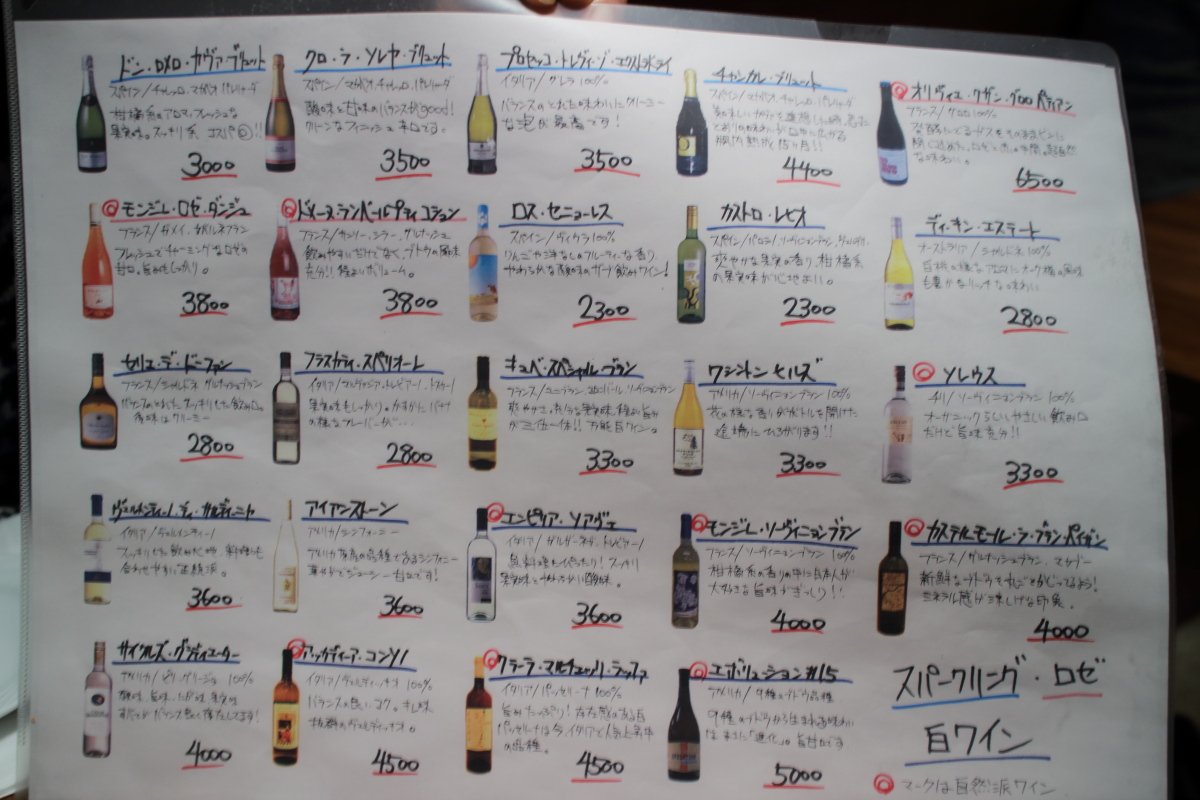 ドン・ロメロ・カヴァ・ブリュット
スペイン/チャレッロ、マカベオ、パレリャーダ
柑橘系のアロマ、フレッシュな
果実味。スッキリ系 コスパ◎!!
3000
クロ・ラ・ソレヤ・ブリュット
スペイン/マカベオ、チャレッロ、パレリャーダ
酸味と甘味のバランスがgood!
クリーンなフィニッシュ 辛口です。
3500
プロセッコ・トレヴィーゾ・エクストラドライ
イタリア/グレラ 100%
バランスのとれた味わいにクリーミー
な泡が最高です!
3500
チャンカレ・ブリュット
スペイン/マカベオ、チャレッロ、パレリャーダ
4400
オリヴィエ・クザン・グロロ
フランス/グロロ100%
6500
モンジレ・ロゼ・ダンジュ
フランス/ガメイ、カベルネフラン
フレッシュでチャーミングなロゼの
甘口。旨みもしっかり。
3800
ドメーヌ・ランベール プティ
フランス/サンソー、シラー、グルナッシュ
飲みやすいだけでなく、ブドウの風味
充分!! 程よいボリューム。
3800
ロス・セニョーレス
スペイン/ヴィウラ100%
りんごや洋なしのフルーティーな香り
やわらかな酸味のガブ飲みワイン!
2300
カストロ・レヒオ
爽やかな果実の香り、柑橘系
の果実味が心地よい。
2300
ディーキン・エステート
オーストラリア/シャルドネ 100%
白桃の様なアロマにオーク樽の風味
も豊かなリッチな味わい
2800
セリエ・デ・ドーファン
フランス/シャルドネ、グルナッシュブラン
バランスのとれた、スッキリした飲み口。
後味はクリーミー
2800
フラスカティ・スペリオーレ
果実味もしっかり。かすかにバナナ
の様なフレーバーが…
2800
キュベ・スペシャル・ブラン
フランス/ユニブラン、コロンバール、ソーヴィニョンブラン
爽やかさ、充分な果実味、程よい旨み
が三位一体!! 万能白ワイン。
3300
ワシントン ヒルズ
アメリカ/ソーヴィニョンブラン 100%
花の様な香りがボトルを開けた
途端に広がります!!
3300
ソレウス
チリ/ソーヴィニョンブラン 100%
オーガニックらしいやさしい飲み口
だけど旨味充分!!
3300
ヴェルメンティーノ・ディ・サルディーニャ
イタリア/ヴェルメンティーノ
スッキリした飲み心地、料理にも
合わせやすい
3600
アイアンストーン
アメリカ/シンフォニー
アメリカ原産の品種であるシンフォニー
華やかでジューシー 甘口です!
3600
エンピリア・ソアヴェ
イタリア/ガルガーネガ、トレビアーノ
魚料理にもぴったり! スッキリ
果実味とやわらかい酸味。
3600
モンジレ・ソーヴィニョンブラン
フランス/ソーヴィニョンブラン 100%
柑橘系の香りの中に日本人が
大好きな旨味がぎっしり!!
4000
カステルモール・ラ・ブラン・ペイザン
フランス/グルナッシュブラン、マカブー
新鮮なブドウを丸ごとかじってるよう!
ミネラル感が涼しげな印象。
4000
サイクルズ・グラディエーター
アメリカ/ピノグリージョ 100%
酸味、旨味、にが味、果実味
すべてがバランス良く落ちてします!
4000
アッカディーア・コンソノ
イタリア/ヴェルディッキオ 100%
バランスの良い、コク、キレ味
抜群のヴェルディッキオ。
4500
クラーラ・マルチェッリ・ラッファ
イタリア/パッセリーナ 100%
旨みたっぷり! 存在感のある白
パッセリーナは今、イタリアで人気上昇中
の品種。
4500
エボリューション #15
アメリカ/9種のブドウ品種
9種のブドウから生まれる味わい
はまさに「進化」。旨甘口です
5000
スパークリング・ロゼ
白ワイン
◎マークは自然派ワイン